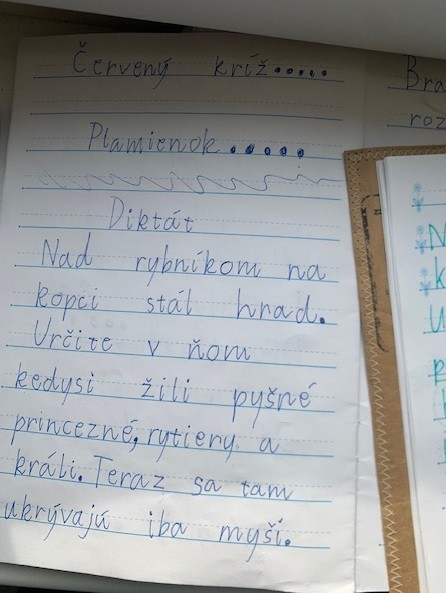 Červený kríž.....
Plamienok.....
Diktát
Nad rybníkom na
kopci stál hrad.
Určite v ňom
kedysi žili pyšné
princezné, rytiery a
králi. Teraz sa tam
ukrývajú iba myší.
Bra
roz